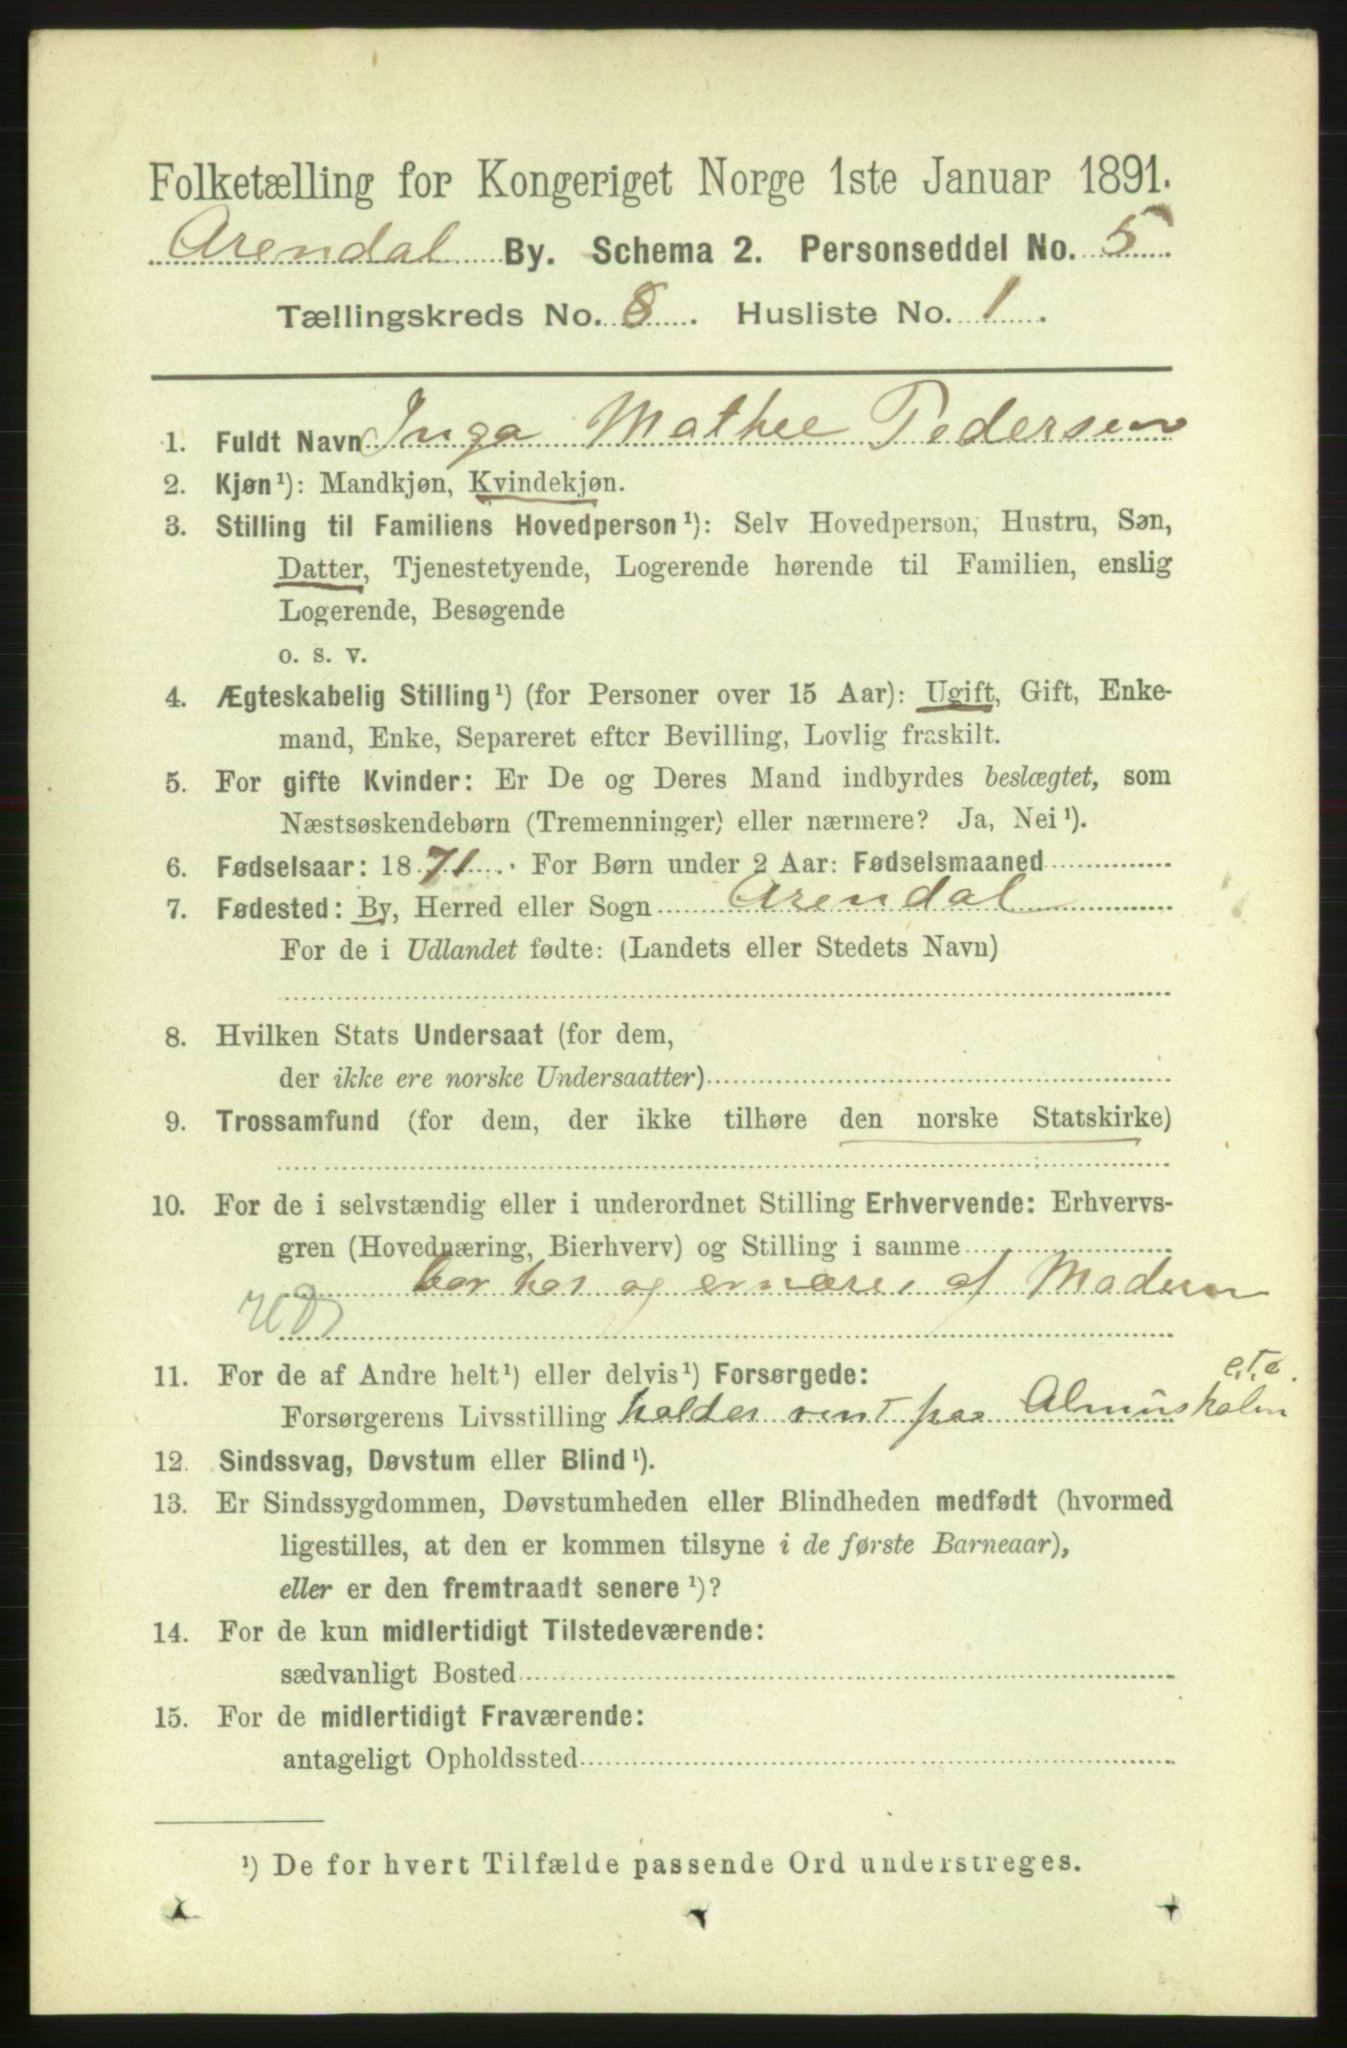 Folketælling for Kongeriget Norge 1ste Januar 1891.
Arendal By. Schema 2. Personseddel No. 5.
Tællingskreds No. 8. Husliste No. 1.
1. Fuldt Navn Inga Mathee Pedersen
2. Kjøn¹): Mandkjøn, Kvindekjøn.
3. Stilling til Familiens Hovedperson¹): Selv Hovedperson, Hustru, Søn,
Datter, Tjenestetyende, Logerende hørende til Familien, enslig
Logerende, Besøgende
o. s. v.
4. Ægteskabelig Stilling¹) (for Personer over 15 Aar): Ugift, Gift, Enke-
mand, Enke, Separeret efter Bevilling, Lovlig fraskilt.
5. For gifte Kvinder: Er De og Deres Mand indbyrdes beslægtet, som
Næstsøskendebørn (Tremenninger) eller nærmere? Ja, Nei¹).
6. Fødselsaar: 1871. For Børn under 2 Aar: Fødselsmaaned
7. Fødested: By, Herred eller Sogn Arendal
For de i Udlandet fødte: (Landets eller Stedets Navn)
8. Hvilken Stats Undersaat (for dem,
der ikke ere norske Undersaatter)
9. Trossamfund (for dem, der ikke tilhøre den norske Statskirke)
10. For de i selvstændig eller i underordnet Stilling Erhvervende: Erhvervs-
gren (Hovednæring, Bierhverv) og Stilling i samme
bor hos og ernæres af Moderen
11. For de af Andre helt¹) eller delvis¹) Forsørgede:
etc.
Forsørgerens Livsstilling holder rent paa
12. Sindssvag, Døvstum eller Blind¹).
13. Er Sindssygdommen, Døvstumheden eller Blindheden medfødt (hvormed
ligestilles, at den er kommen tilsyne i de første Barneaar),
eller er den fremtraadt senere¹)?
14. For de kun midlertidigt Tilstedeværende:
sædvanligt Bosted
15. For de midlertidigt Fraværende:
antageligt Opholdssted
¹) De for hvert Tilfælde passende Ord understreges.